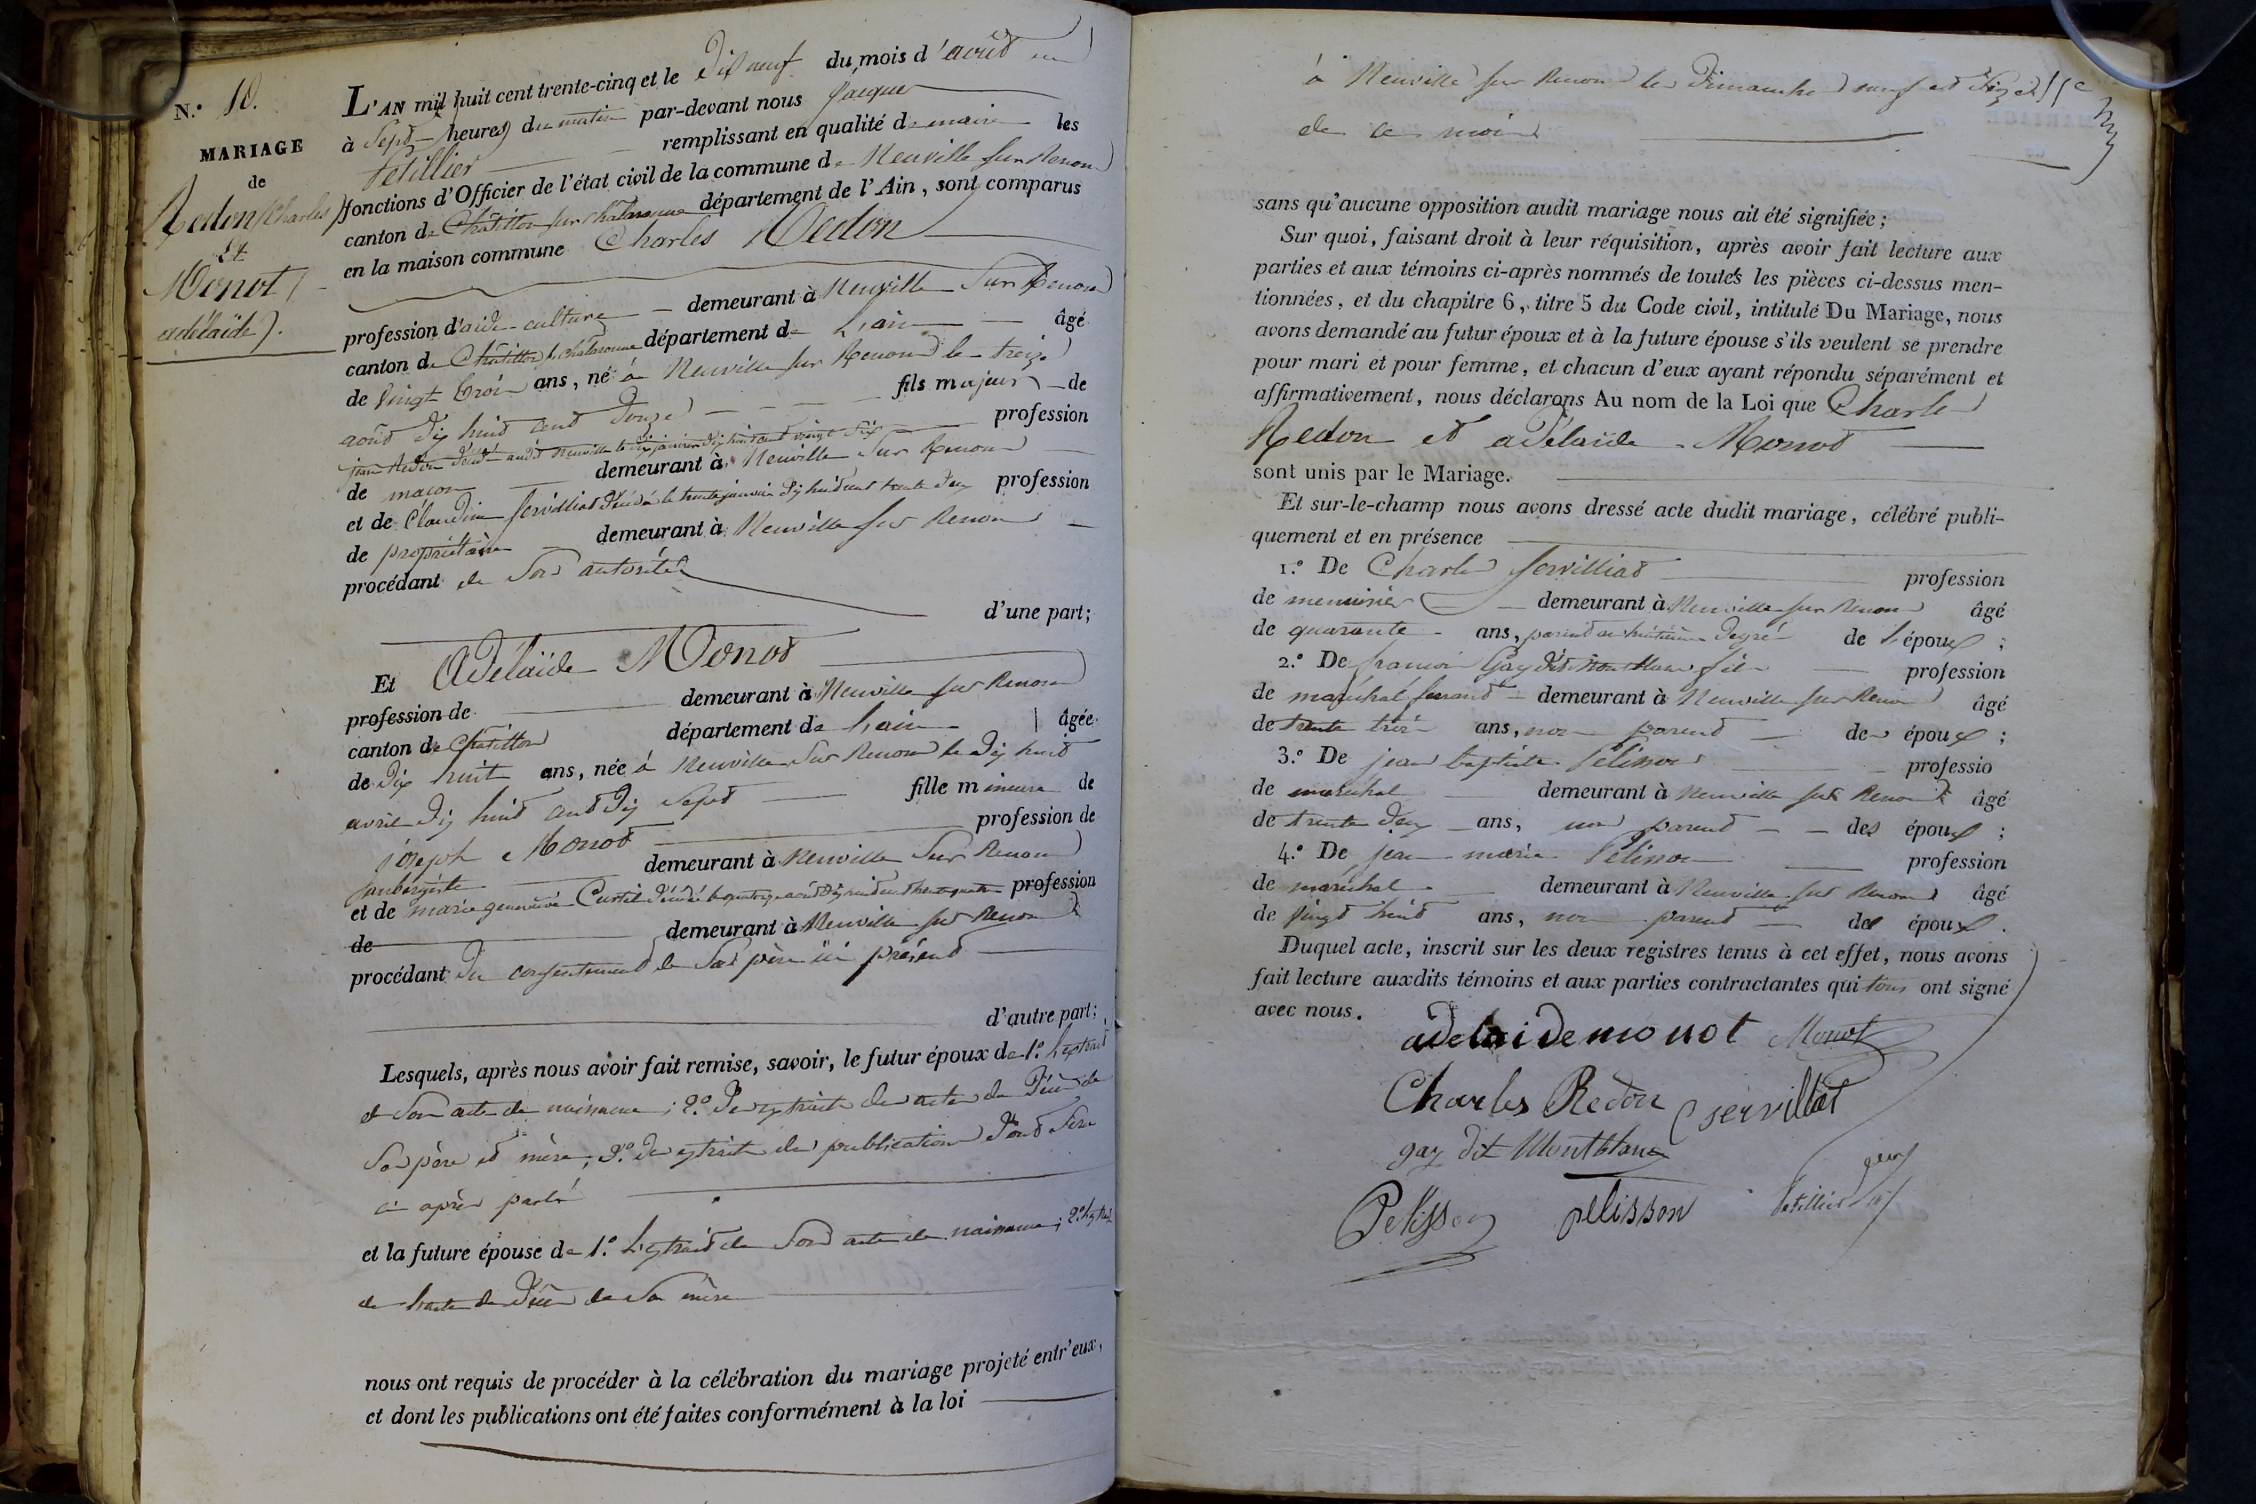 N.º 10.
MARIAGE
de
Redon (Charles)
Et
Monot (
adélaïde).
L'AN mil huit cent trente-cinq et le Dix neuf du mois d'août
à Sept heures du matin par-devant nous Jacques
Petillier remplissant en qualité de maire les
fonctions d'Officier de l'état civil de la commune de Neuville sur Renon
canton de Châtillon sur chalaronne département de l'Ain, sont comparus
en la maison commune Charles Redon
profession d'aide-culture demeurant à Neuville Sur Renon
canton de Châtillon s. chalaronne département de L'ain âgé
de vingt trois ans, né à Neuville sur Renon le treize
août Dix huit cent Douze fils majeur de
jean Redon Décédé audit Neuville le Dix janvier Dix huit cent vingt Six profession
de macon demeurant à Neuville Sur Renon
et de Claudine Servilliat Décédée le trente janvier Dix huit cent trente Deux profession
de propriétaire demeurant à Neuville sur Renon
procédant de Son autorité
d'une part;
Et Adélaïde Monot
profession de demeurant à Neuville sur Renon
canton de Châtillon département de L'ain âgée
de Dix huit ans, née à Neuville Sur Renon le Dix huit
avril Dix huit cent Dix Sept fille mineure de
joseph Monot profession de
aubergiste demeurant à Neuville Sur Renon
et de marie genevieve Curtil Décédée le quatorze août Dix huit cent trente quatre profession
de demeurant à Neuville sur Renon
procédant Du consentement de Son père ici présent
d'autre part;
Lesquels, après nous avoir fait remise, savoir, le futur époux de 1.º L'extrait
de Son acte de naissance; 2.º Des extraits des actes de Décès de
Ses père et mère; 3.º Des extraits des publications Dont Sera
ci après parlé
et la future épouse de 1.º L'extrait de Son acte de naissance; 2.º L'extrait
de L'acte de Décès de Sa mère
nous ont requis de procéder à la célébration du mariage projeté entr'eux,
et dont les publications ont été faites conformément à la loi
à Neuville sur Renon les Dimanches neuf et Seize
de ce mois
sans qu'aucune opposition audit mariage nous ait été signifiée;
Sur quoi, faisant droit à leur réquisition, après avoir fait lecture aux
parties et aux témoins ci-après nommés de toutes les pièces ci-dessus men-
tionnées, et du chapitre 6, titre 5 du Code civil, intitulé Du Mariage, nous
avons demandé au futur époux et à la future épouse s'ils veulent se prendre
pour mari et pour femme, et chacun d'eux ayant répondu séparément et
affirmativement, nous déclarons Au nom de la Loi que Charles
Redon et adélaïde Monot
sont unis par le Mariage.
Et sur-le-champ nous avons dressé acte dudit mariage, célébré publi-
quement et en présence
1.º De Charles Servilliat profession
de menuisier demeurant à Neuville sur Renon âgé
de quarante ans, parent au huitième Degré de l'époux;
2.º De françois Gay dit Montblanc fils profession
de maréchal ferrand demeurant à Neuville sur Renon âgé
de trente trois ans, non parent des époux;
3.º De jean baptiste Pélisson professio
de maréchal demeurant à Neuville sur Renon âgé
de trente Deux ans, non parent des époux;
4.º De jean marie Pélisson profession
de maréchal demeurant à Neuville sur Renon âgé
de vingt huit ans, non parent des époux.
Duquel acte, inscrit sur les deux registres tenus à cet effet, nous avons
fait lecture auxdits témoins et aux parties contractantes qui tous ont signé
avec nous.
adelaide monot Monot
Charles Redon C servillat
gay dit Montblanc
Pelisson pelisson Petillier